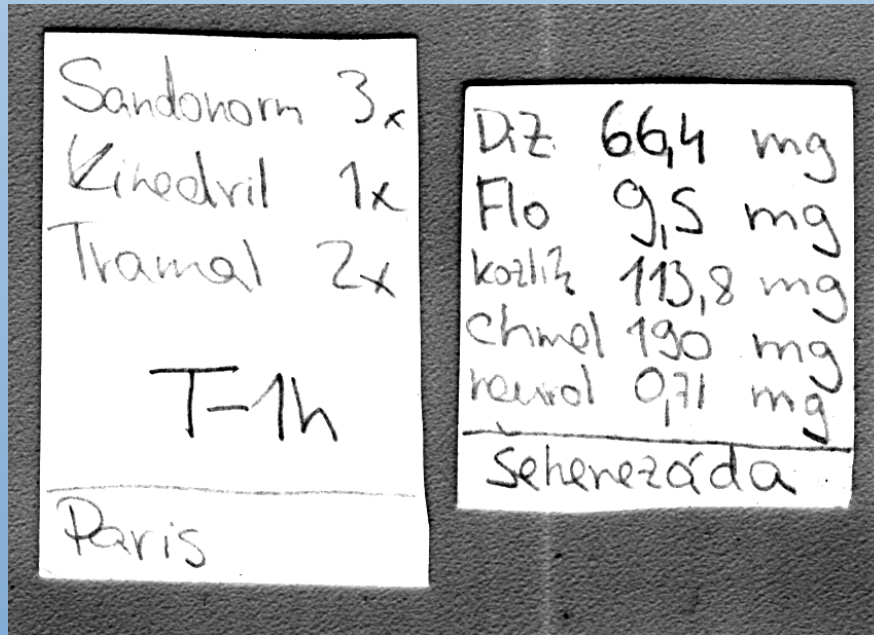 Sandonorm 3x
Kinedril 1x
Tramal 2x
T-1h
Paris
DiZ 66,4 mg
Flo 9,5 mg
kozlík 113,8 mg
chmel 190 mg
neurol 0,71 mg
Šeherezáda